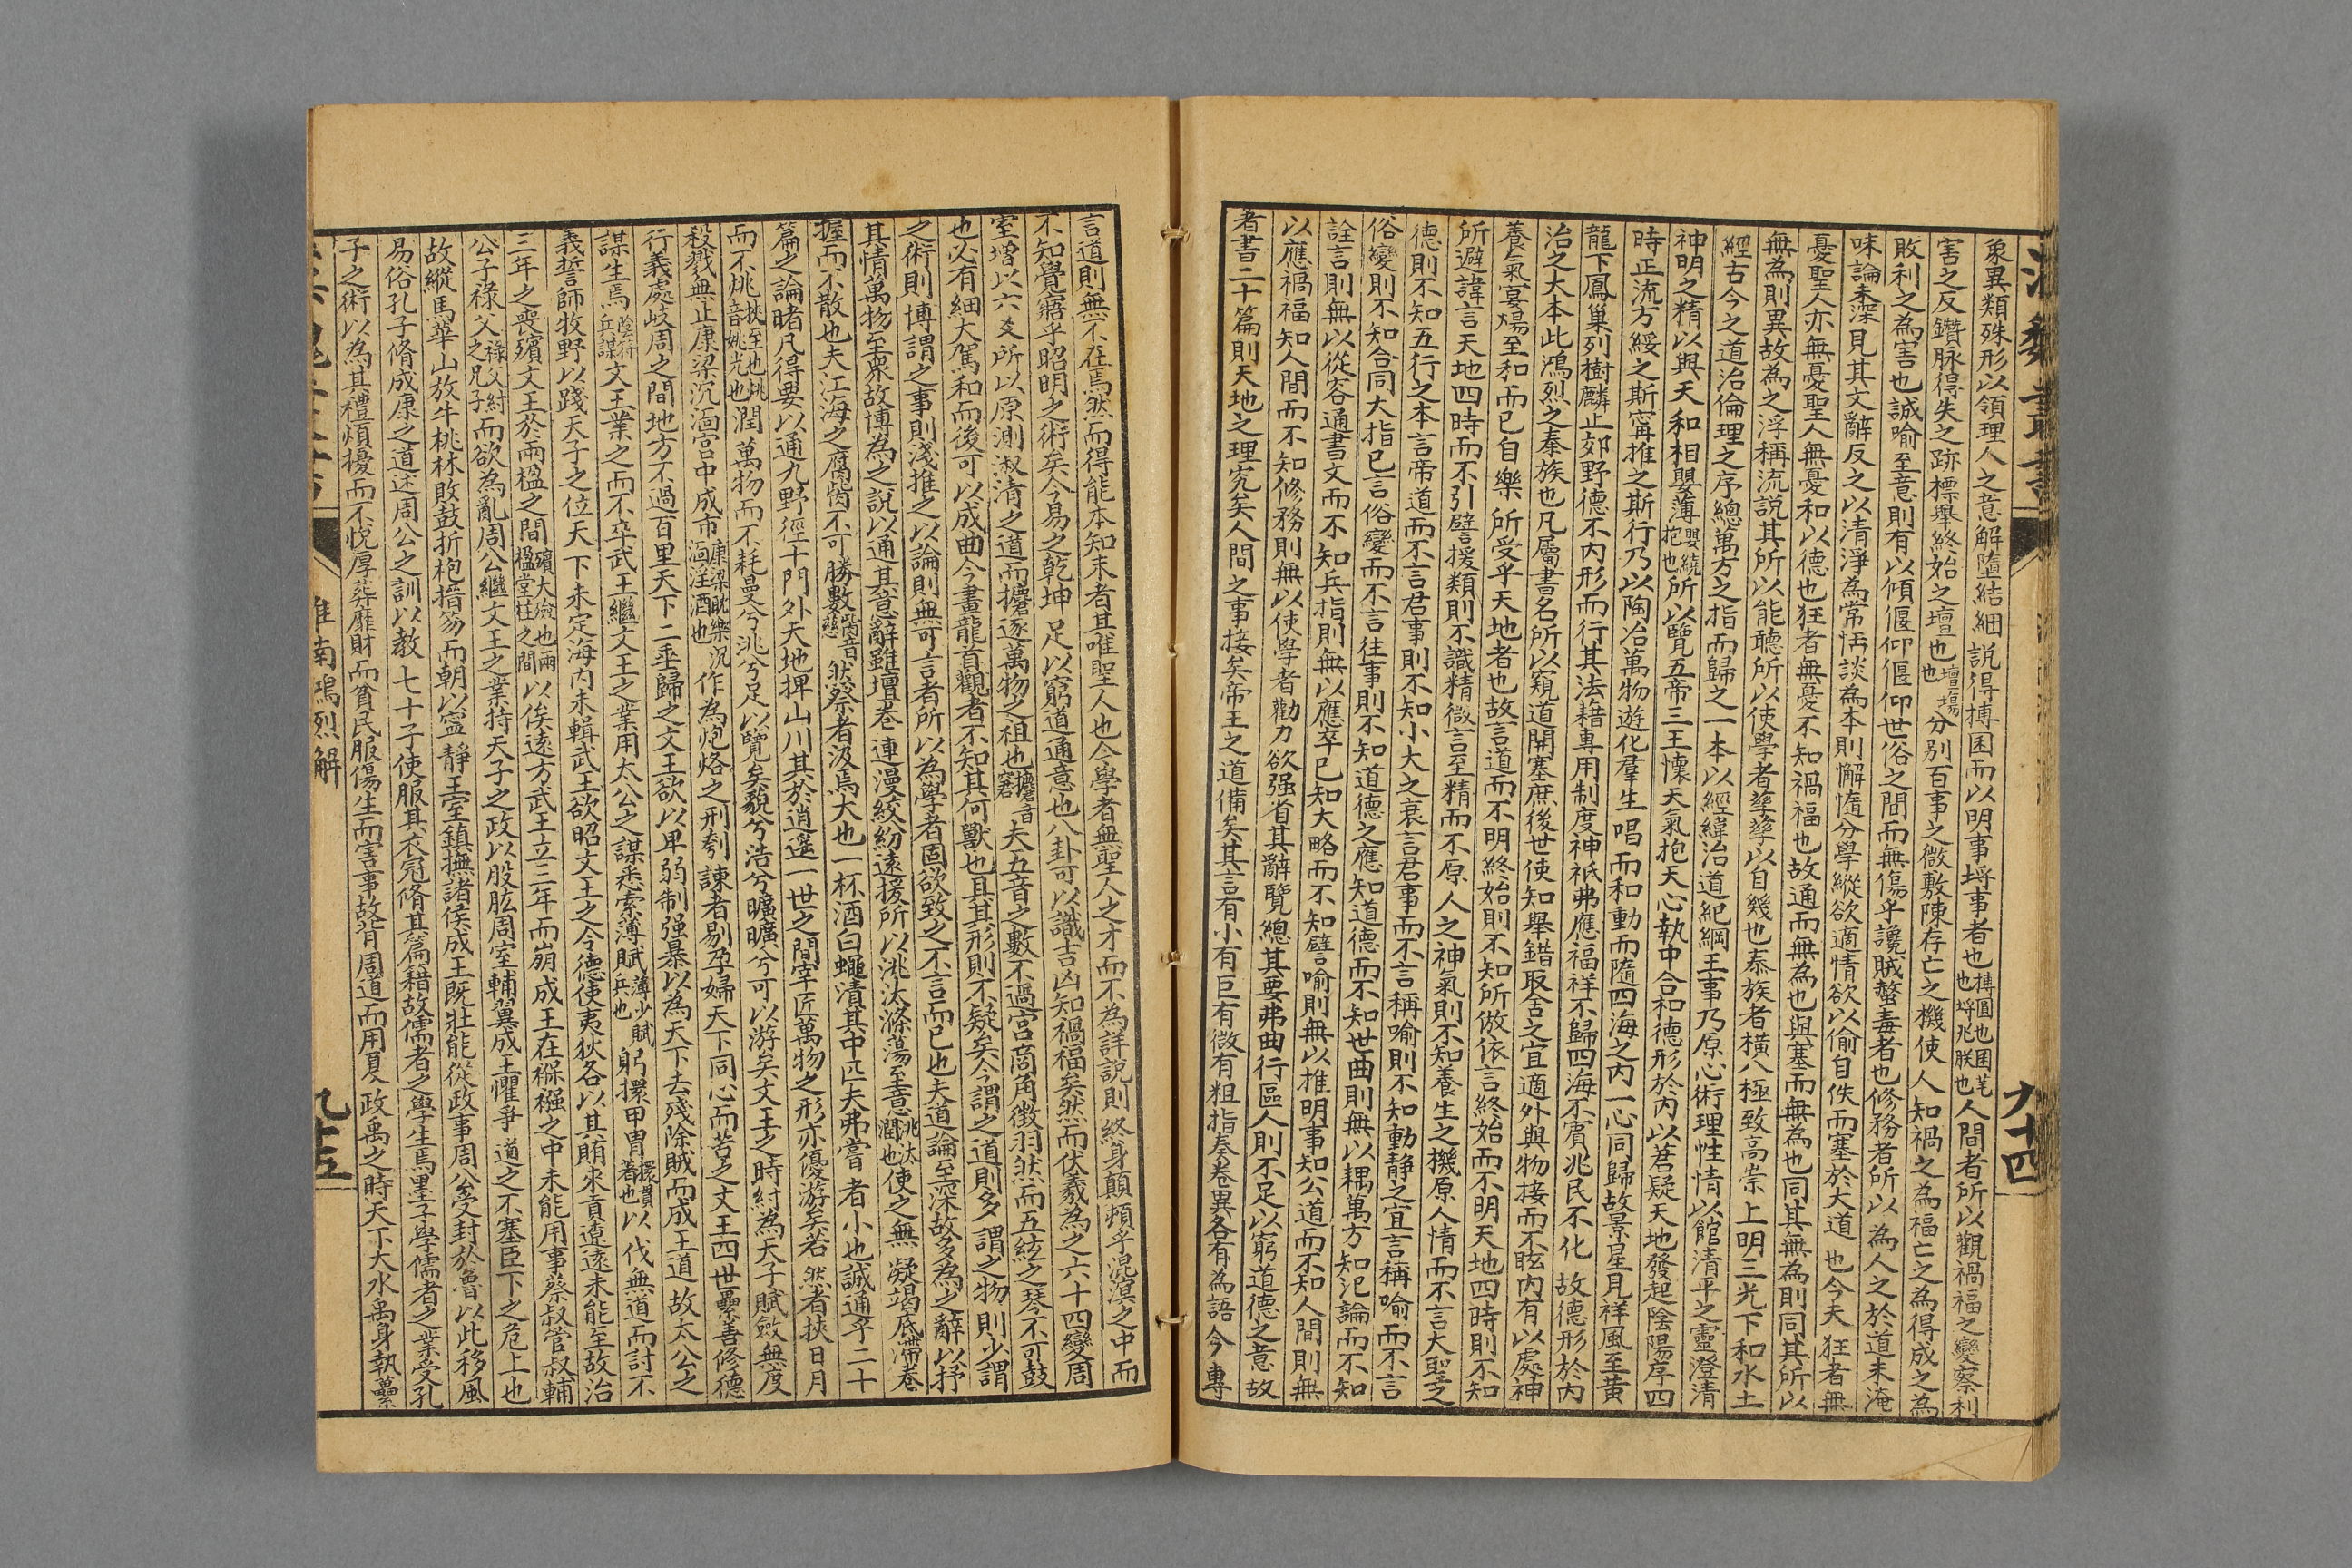 象異類殊形以領理人之意解墮結細說得摶囷而以明事埒事者也摶圓也囷芼也埒兆朕也人間者所以觀禍福之變察利
害之反鑽脉得失之跡標舉終始之壇也壇場也分别百事之微敷陳存亡之機使人知禍之為福亡之為得成之為
敗利之為害也誠喻至意則有以傾偃仰偃仰世俗之間而無傷乎讒賊螫毒者也修務者所以為人之於道未淹
味論未深見其文辭反之以清淨為常恬談為本則懈惰分學縱欲適情欲以偷自佚而塞於大道也今夫狂者無
憂聖人亦無憂聖人無憂和以德也狂者無憂不知禍福也故通而無為也與塞而無為也同其無為則同其所以
無為則異故為之浮稱流說其所以能聽所以使學者孳孳以自幾也泰族者橫八極致高崇上明三光下和水土
經古今之道治倫理之序總萬方之指而歸之一本以經緯治道紀綱王事乃原心術理性情以館清平之靈澄清
神明之精以與天和相嬰薄嬰繞抱也所以覽五帝三王懷天氣抱天心執中合和德形於內以莙疑天地發起陰陽序四
時正流方綏之斯寧推之斯行乃以陶冶萬物遊化羣生唱而和動而隨四海之內一心同歸故景星見祥風至黄
龍下鳳巢列樹麟止郊野德不内形而行其法籍專用制度神祇弗應福祥不歸四海不賓兆民不化故德形於内
治之大本此鴻烈之泰族也凡屬書名所以窺道開塞庶後世使知舉錯取舍之宜適外與物接而不眩內有以處神
養氣宴煬至和而已自樂所受乎天地者也故言道而不明終始則不知所倣依言終始而不明天地四時則不知
所避諱言天地四時而不引譬援類則不識精微言至精而不原人之神氣則不知養生之機原人情而不言大聖之
德則不知五行之本言帝道而不言君事則不知小大之衰言君事而不言稱喻則不知動静之宜言稱喻而不言
俗變則不知合同大指已言俗變而不言往事則不知道德之應知道德而不知世曲則無以耦萬方知氾論而不知
詮言則無以從容通書文而不知兵指則無以應卒已知大略而不知譬喻則無以推明事知公道而不知人間則無
以應禍福知人間而不知修務則無以使學者勸力欲强省其辭覽總其要弗曲行區入則不足以窮道德之意故
者書二十篇則天地之理究矣人間之事接矣帝王之道備矣其言有小有巨有微有粗指奏卷異各有為語今專
九十四
言道則無不在焉然而得能本知末者其唯聖人也今學者無聖人之才而不為詳說則終身顛頓乎混溟之中而
不知覺寤乎昭明之術矣今易之乾坤足以窮道通意也八卦可以識吉凶知禍福矣然而伏羲為之六十四變周
室增以六爻所以原測淑清之道而攈逐萬物之祖也攈音窘夫五音之數不過宮商角徵羽然而五絃之琴不可鼓
也必有細大駕和而後可以成曲今畫龍首觀者不知其何獸也具其形則不疑矣今謂之道則多謂之物則少謂
之術則博謂之事則淺推之以論則無可言者所以為學者固欲致之不言而已也夫道論至深故多為之辭以抒
其情萬物至衆故博為之說以通其意辭雖壇卷連漫絞紛遠援所以洮汰滌蕩至意洮汰潤也使之無凝竭底滯卷
握而不散也夫江海之腐胔不可勝數胔音慈然祭者汲焉大也一杯酒白蠅漬其中匹夫弗嘗者小也誠通乎二十
篇之論睹凡得要以通九野徑十門外天地捭山川其於逍遥一世之間宰匠萬物之形亦優游矣若然者挾日月
而不烑挾至也烑音姚光也潤萬物而不耗曼兮洮兮足以覽矣藐兮浩兮曠曠兮可以游矣文王之時紂為天子賦斂無度
殺戮無止康梁沉湎宫中成市康梁躭樂沉湎淫酒也作為炮烙之刑刳諫者剔孕婦天下同心而苦之文王四世纍善修德
行義處岐周之間地方不過百里天下二垂歸之文王欲以卑弱制强暴以為天下去殘除賊而成王道故太公之
謀生焉陰符兵謀文王業之而不卒武王繼文王之業用太公之謀悉索薄賦薄少賦兵也躬擐甲胄擐貫著也以伐無道而討不
義誓師牧野以踐天子之位天下未定海內未輯武王欲昭文王之令德使夷狄各以其賄來貢遼遠未能至故治
三年之喪殯文王於兩楹之間殯大殮也兩楹堂柱之間以俟遠方武王立三年而崩成王在褓襁之中未能用事蔡叔管叔輔
公子祿父祿父紂之兄子而欲為亂周公繼文王之業持天子之政以股肱周室輔翼成王懼爭道之不塞臣下之危上也
故縱馬華山放牛桃林敗鼓折枹搢笏而朝以寧靜王室鎮撫諸侯成王既壯能從政事周公受封於魯以此移風
易俗孔子脩成康之道述周公之訓以教七十子使服其衣冠脩其篇籍故儒者之學生焉墨子學儒者之業受孔
子之術以為其禮煩擾而不悅厚葬靡財而貧民服傷生而害事故背周道而用夏政禹之時天下大水禹身執虆
淮南鴻烈解
九十五